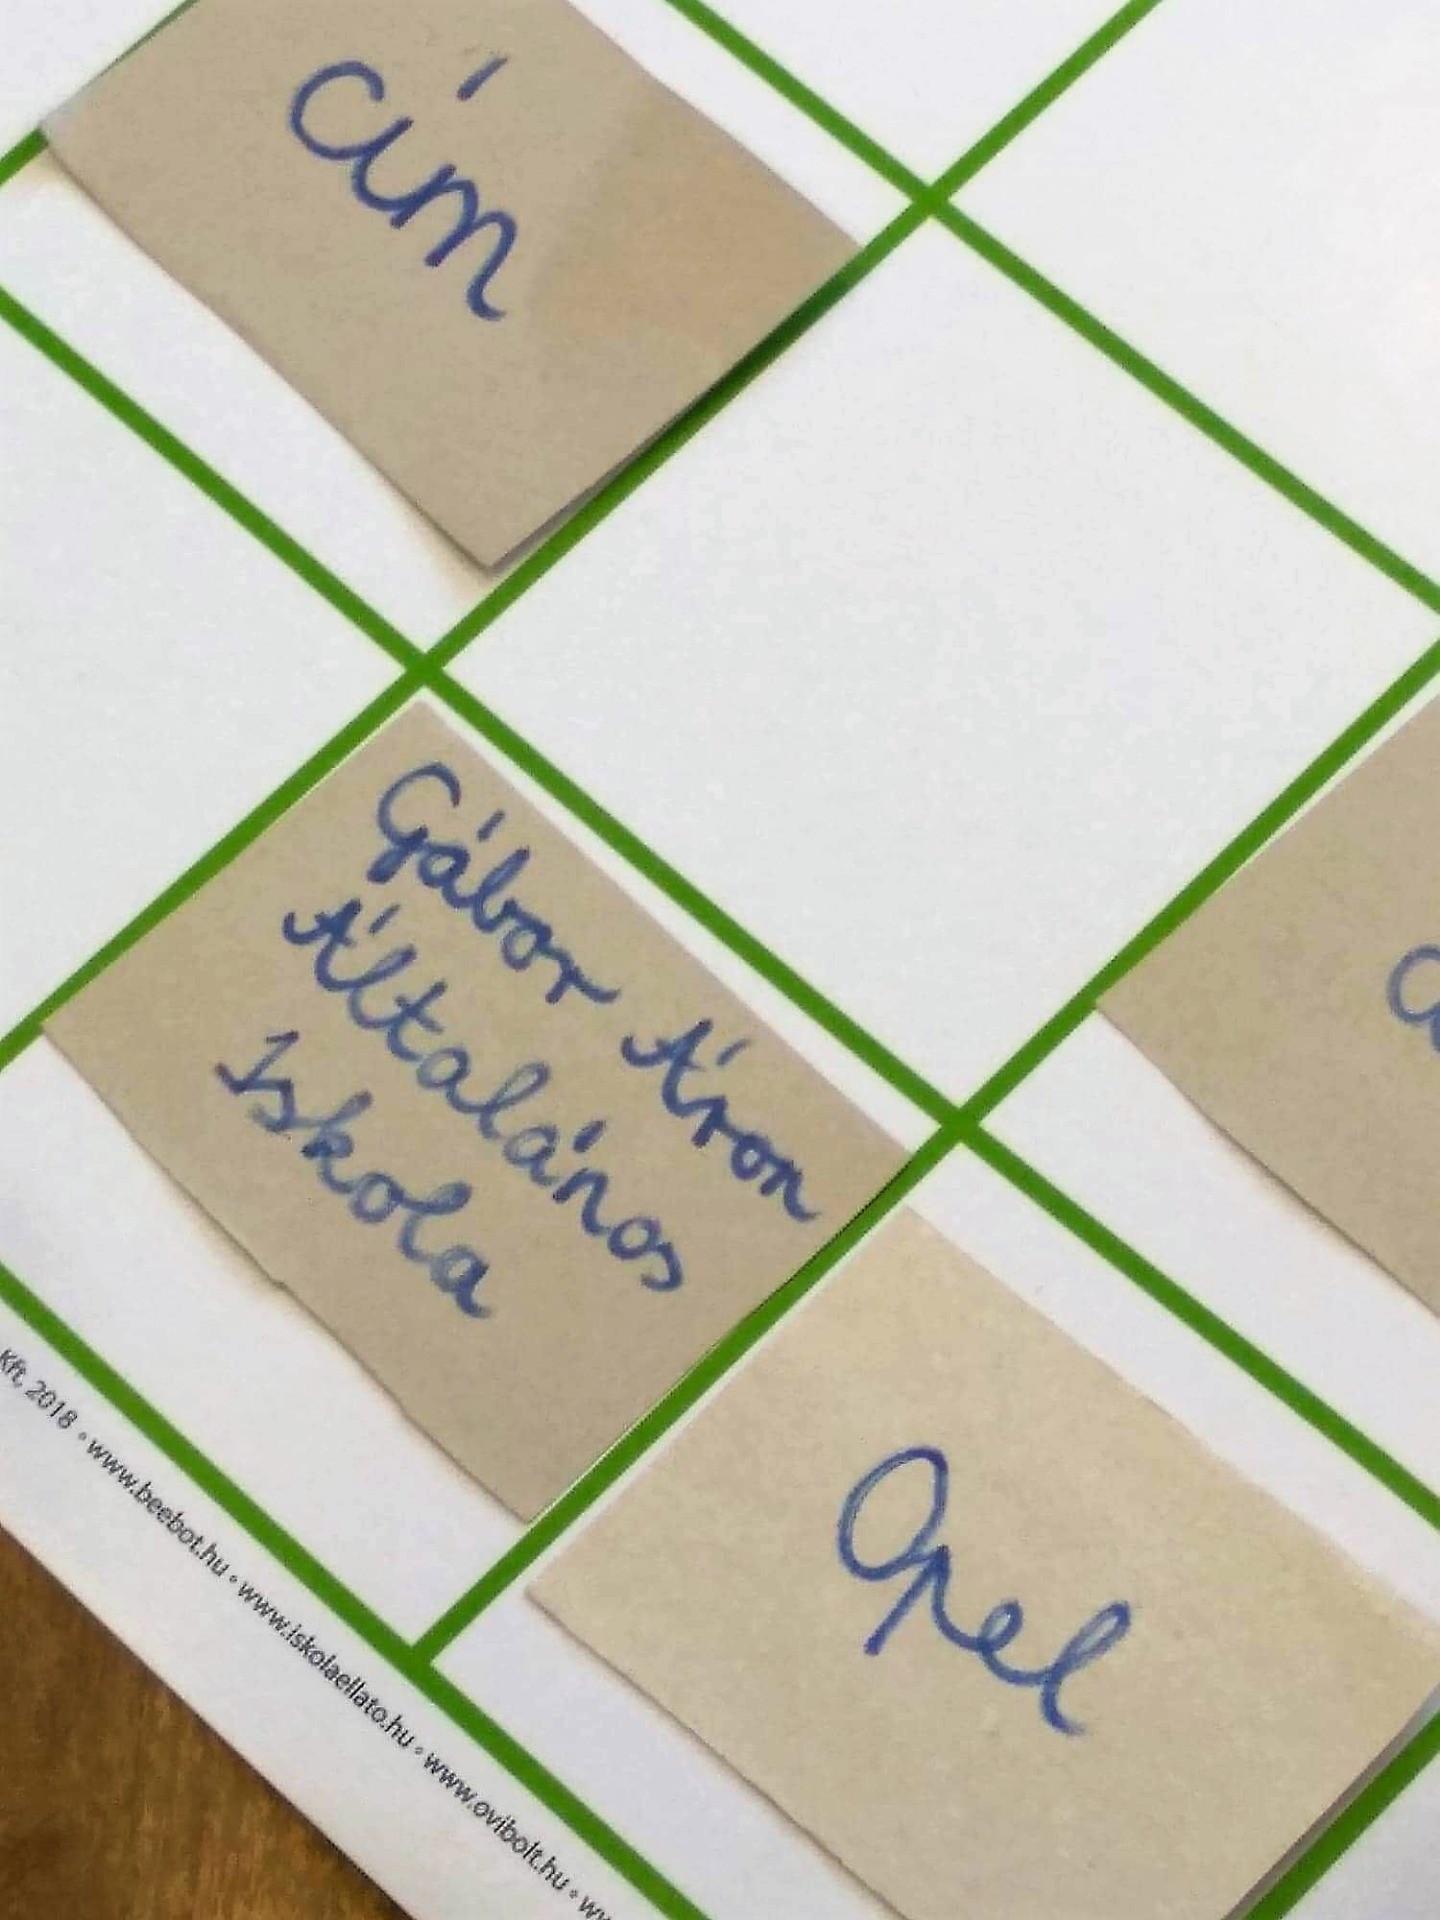 cím
Gábor Áron
Általános
Iskola
Opel
Kft, 2018 • www.beebot.hu • www.iskolaellato.hu • www.ovibolt.hu •